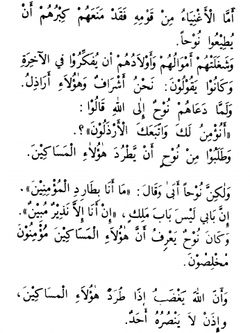 أَمَّا الْأَغْنِيَاءُ مِنْ قَوْمِهِ فَقَدْ مَنَعَهُمْ كِبْرُهُمْ أَنْ
يُطِيعُوا نُوحاً.
وَشَغَلَتْهُمْ أَمْوَالُهُمْ وَأَوْلَادُهُمْ أَنْ يُفَكِّرُوا فِي الآخِرَةِ
وَكَانُوا يَقُولُونَ: نَحْنُ أَشْرَافٌ وَهٰؤُلَاءِ أَرَاذِلُ.
وَلَمَّا دَعَاهُمْ نُوحٌ إِلَى اللهِ قَالُوا:
«أَنُؤْمِنُ لَكَ وَاتَّبَعَكَ الْأَرْذَلُونَ»؟
وَطَلَبُوا مِنْ نُوحٍ أَنْ يَطْرُدَ هٰؤُلَاءِ الْمَسَاكِينَ.
وَلٰكِنَّ نُوحاً أَبَى وَقَالَ: «مَا أَنَا بِطَارِدِ الْمُؤْمِنِينَ»،
إِنَّ بَابِي لَيْسَ بَابَ مَلِكٍ، «إِنْ أَنَا إِلَّا نَذِيرٌ مُبِينٌ».
وَكَانَ نُوحٌ يَعْرِفُ أَنَّ هٰؤُلَاءِ الْمَسَاكِينَ مُؤْمِنُونَ
مُخْلِصُونَ.
وَأَنَّ اللهَ يَغْضَبُ إِذَا طُرِدَ هٰؤُلَاءِ الْمَسَاكِينُ،
وَإِذَنْ لَا يَنْصُرُهُ أَحَدٌ.